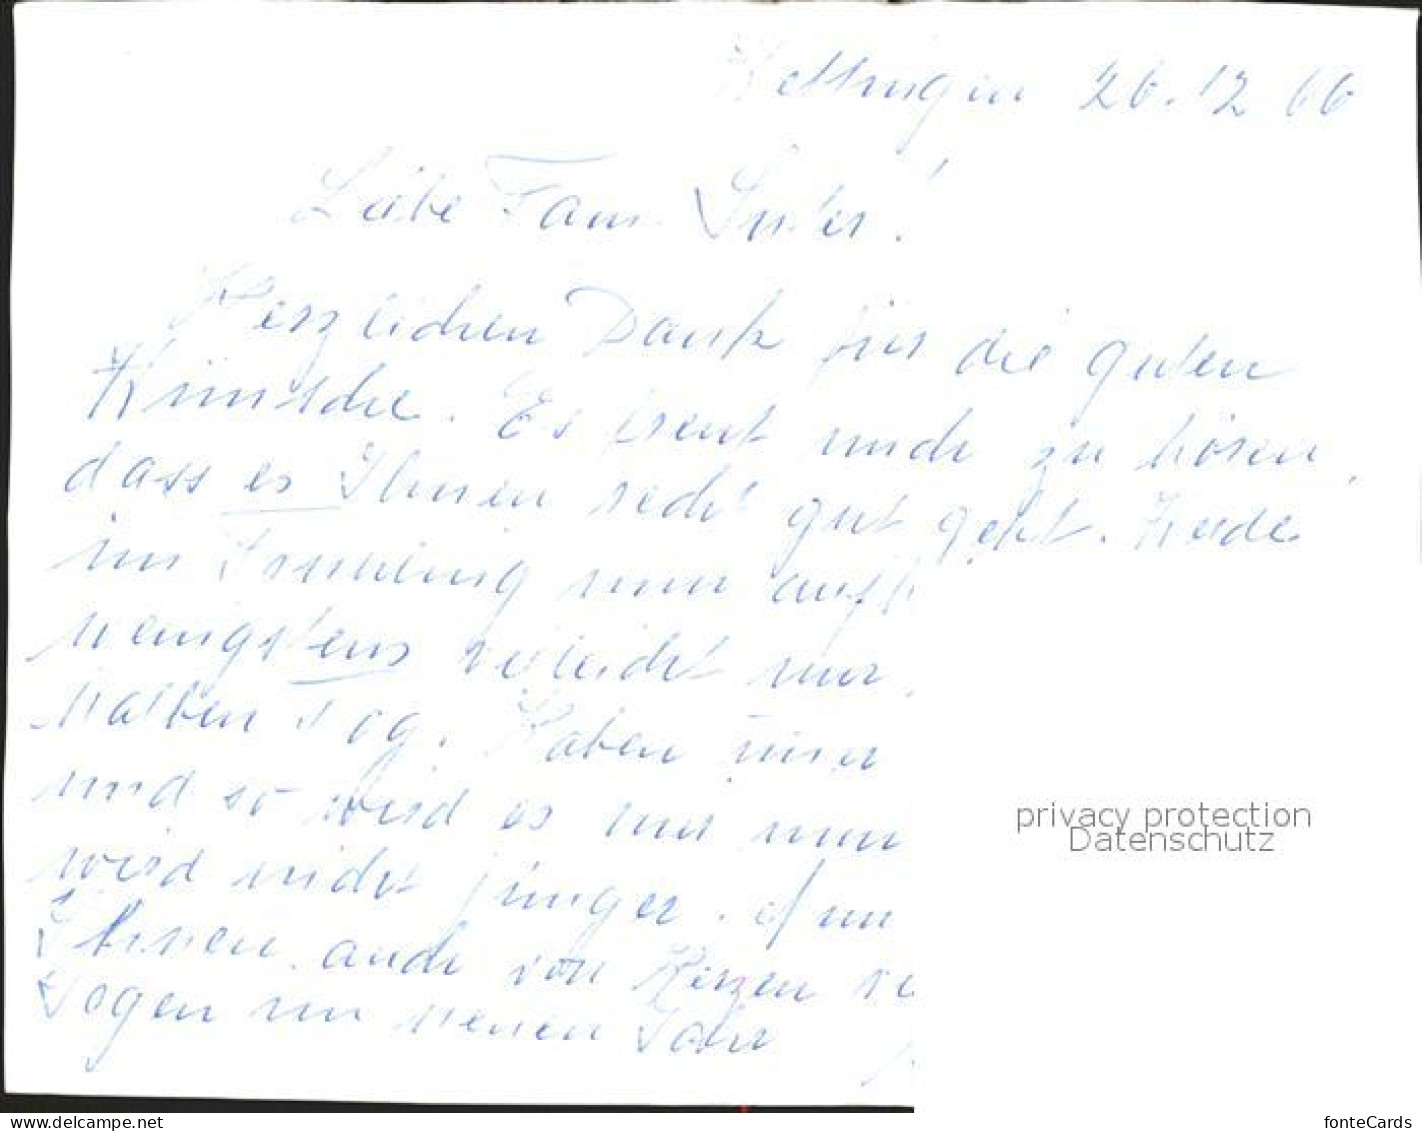 Wettingen 26.12 66
Liebe Fam. Suter!
Herzlichen Dank für die guten
Wünsche. Es freut mich zu hören,
dass es Ihnen recht gut geht. Werde
im Frühling nun
wenigstens vieleicht nur
halben Tag. Haben
und so wird es mir nun
wird nicht jünger.
Ihnen auch von Herzen
Segen im neuen Jahr
privacy protection
Datenschutz
www.delcampe.net
fonteCards